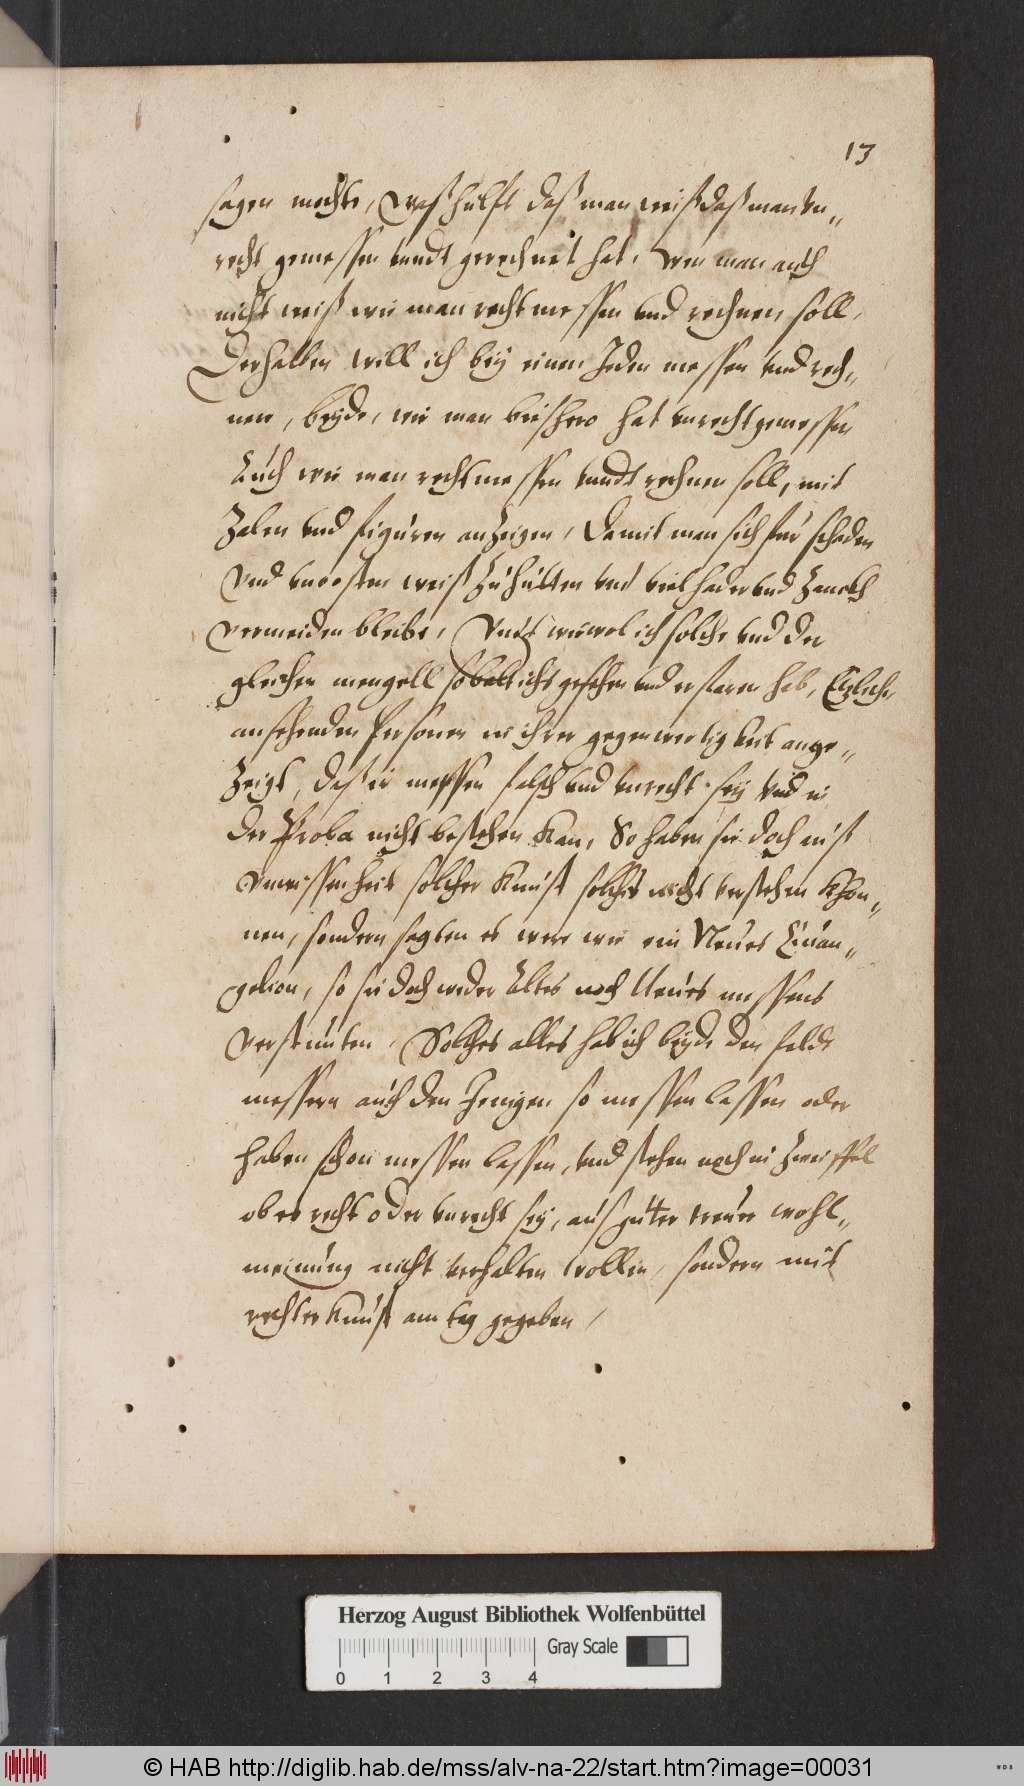 13
sagen mochte, waß hülfft daß man weiß daß man vn„
recht gemessen vnndt gerechnet hat, wen man auch
nicht weiß wie man recht messen vnd rechnen soll,
Derhalben will ich beÿ einen Jeden messen vnd rech„
nen, beÿde, wie man bißhero hat vnrecht gemessen
Auch wie man recht messen vnndt rechnen soll, mit
Zalen vnd figuren anzeigen, damit man sich für schaden
vnd vnkosten weiß zuhütten vnd viel hader vnd Zanckh
vermeiden bleibe, Vnnd wiewol ich solche vnd der
gleichen mengell so balt ichs gesehen vnd erfaren hab, Etzliche
ansehenden Personen in ihrer gegenwertig keit ange„
Zeigt, daß ir messen falsch vnd vnrecht seÿ vnd in
der Proba nicht bestehen kan, So haben sie doch auß
vnwissenheit solcher kunst solches nicht verstehen khön„
nen, sondern sagten es were wie ein Neues Euan„
gelion, so sie doch weder Altes noch Neues messens
verstunten, Solches alles hab ich beÿde den feldt
messern auch den Jenigen so messen lassen oder
haben schon messen lassen, vnd stehen noch in Zweiffel
ob es recht oder vnrecht seÿ, aus guter treuer wohl„
meinung nicht verhalten wollen, sondern mit
rechter kunst am tag gegeben,
Herzog August Bibliothek Wolfenbüttel
Gray Scale
0 1 2 3 4
© HAB http://diglib.hab.de/mss/alv-na-22/start.htm?image=00031